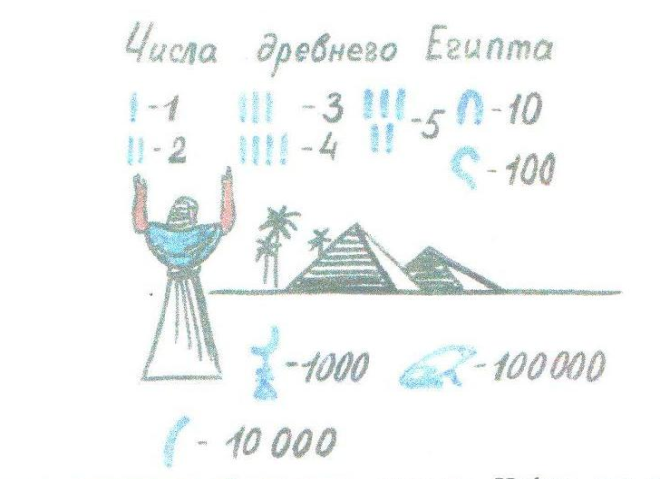 Числа древнего Египта
-1 -3 -5 -10
-2 -4 -100
-1000 -100000
- 10 000